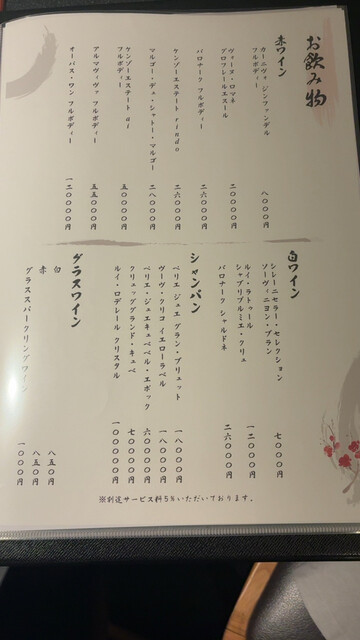 お飲み物
赤ワイン
カーニヴォ ジンファンデル
フルボディー
八〇〇〇円
ヴォーヌ・ロマネ
グロフレールエスール
二〇〇〇〇円
バロナーク フルボディー
二六〇〇〇円
ケンゾーエステート rindo
二六〇〇〇円
マルゴー・デュ・シャトー・マルゴー
二八〇〇〇円
ケンゾーエステート ai
フルボディー
五五〇〇〇円
アルマヴィヴァ フルボディー
五五〇〇〇円
オーパス・ワン フルボディー
一二〇〇〇〇円
白ワイン
シレーニセラー・セレクション
ソーヴィニヨン・ブラン
七〇〇〇円
ルイ・ラトゥール
シャブリプルミエ・クリュ
一二〇〇〇円
バロナーク シャルドネ
二六〇〇〇円
シャンパン
ペリエ ジュエ グラン・ブリュット
一八〇〇〇円
ヴーヴ・クリコ イエローラベル
一八〇〇〇円
ペリエ・ジュエキュベベル・エポック
六〇〇〇〇円
クリュッグランド・キュベ
七〇〇〇〇円
ルイ・ロデレール クリスタル
一〇〇〇〇〇円
グラスワイン
白
八五〇円
赤
八五〇円
グラススパークリングワイン
一〇〇〇円
※別途サービス料5%いただいております。